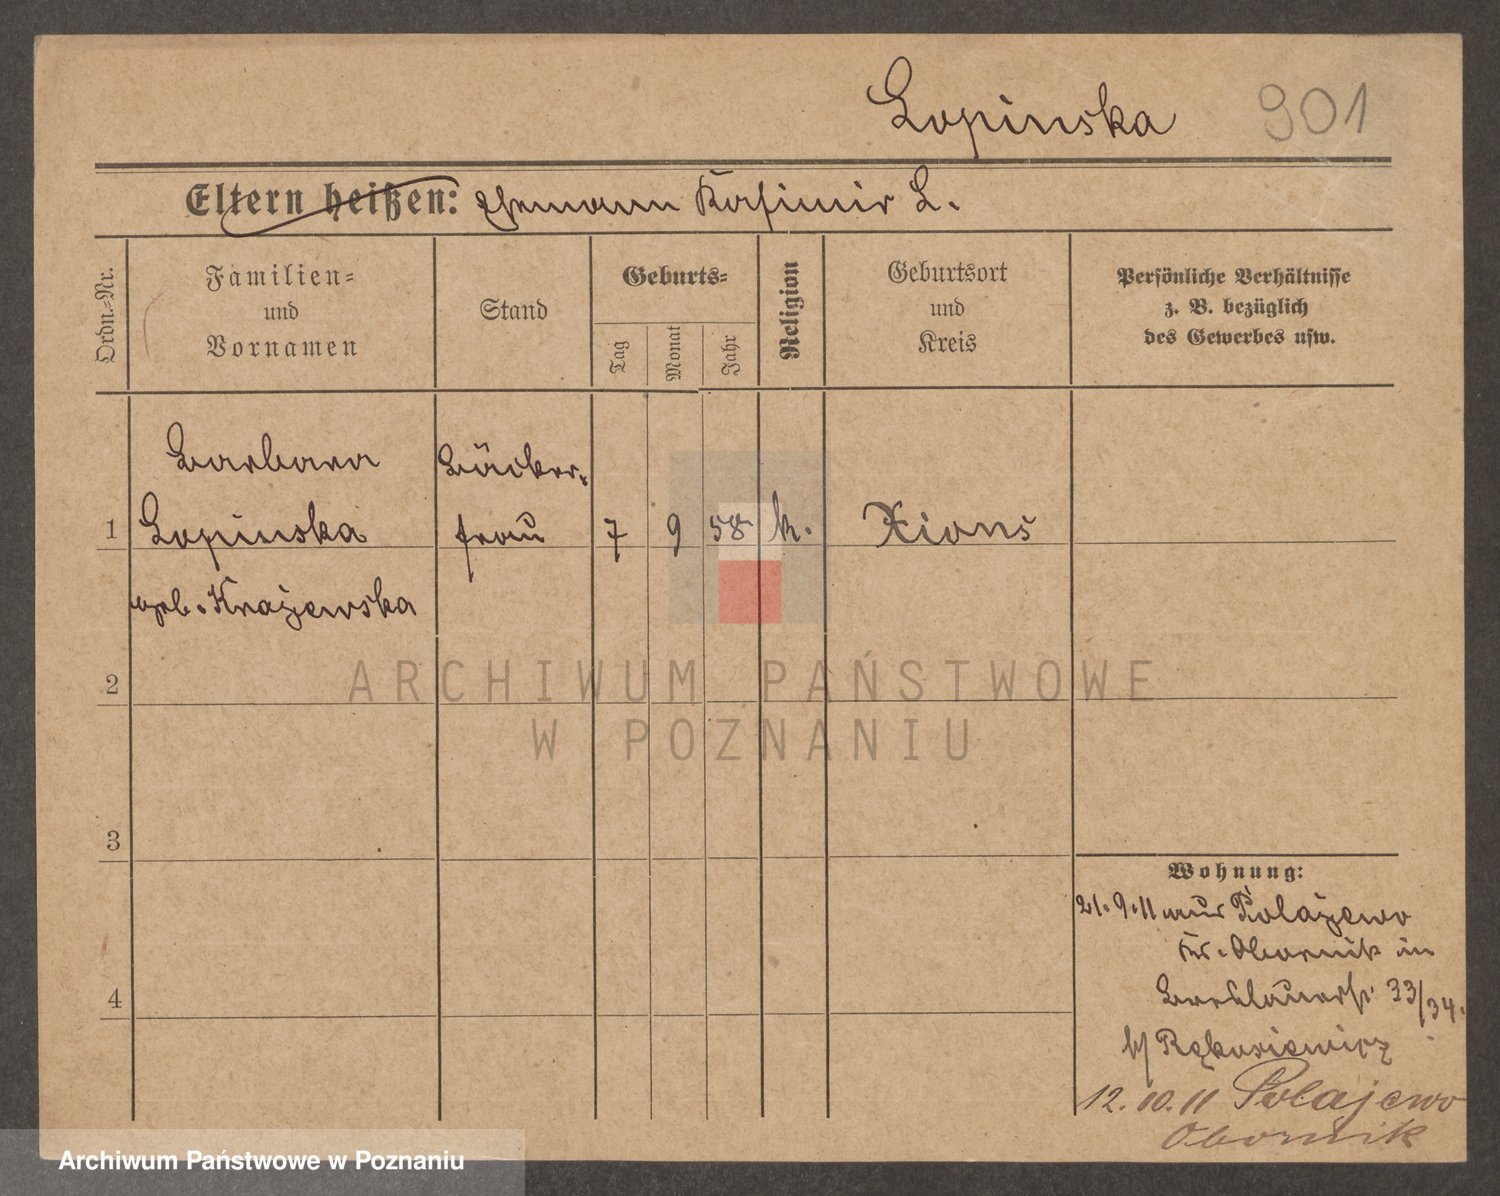 Lopinska 901
Eltern heißen: Ehemann Kasimir L.
Ordn.-Nr.
Familien-
und
Vornamen
Stand
Geburts-
Tag
Monat
Jahr
Religion
Geburtsort
und
Kreis
Persönliche Verhältnisse
z. B. bezüglich
des Gewerbes usw.
Barbara
Lopinska
geb. Krażewska
Bäcker-
frau
1 7 9 58 k. Xions
2
3
4
ARCHIWUM PAŃSTWOWE
W POZNANIU
Wohnung:
21.9.11 aus Polażewo
Kr. Obornik in
Breslauerstr 33/34.
b/
12.10.11 Polajewo
Obornik
Archiwum Państwowe w Poznaniu